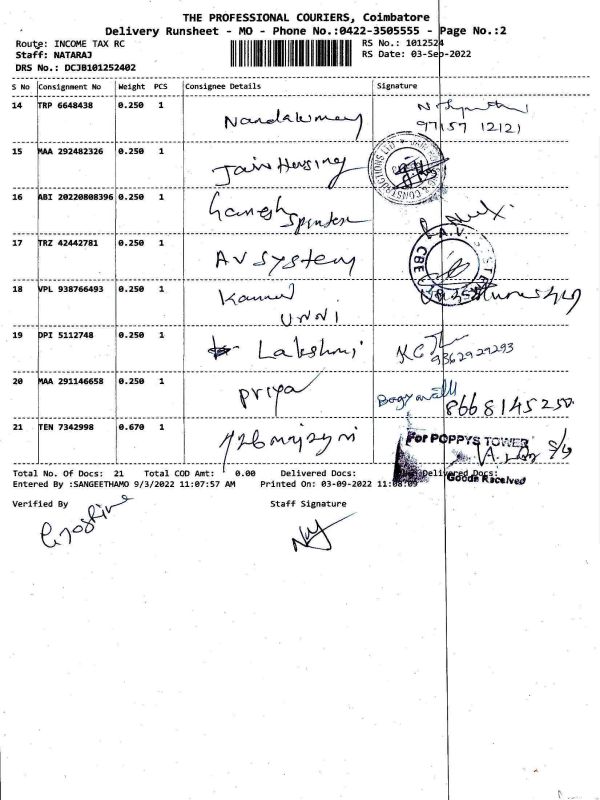 THE PROFESSIONAL COURIERS, Coimbatore
Delivery Runsheet - MO - Phone No.:0422-3505555 - Page No.:2
Route: INCOME TAX RC RS No.: 1012524
Staff: NATARAJ RS Date: 03-Sep-2022
DRS No.: DCJB101252402
S No Consignment No Weight PCS Consignee Details Signature
14 TRP 6648438 0.250 1
97157 12121
15 MAA 292482326 0.250 1 Jain Housing
CONSTRUCTIONS LTD
16 ABI 20220808396 0.250 1 Ganesh
17 TRZ 42442781 0.250 1 AV System
A.V. CBE
18 VPL 938766493 0.250 1
UNNI
19 DPI 5112748 0.250 1 Lakshmi KC 9362929293
20 MAA 291146658 0.250 1 Priya 8668145250
21 TEN 7342998 0.670 1
For POPPYS TOWER
Goods Received
Total No. Of Docs: 21 Total COD Amt: 0.00 Delivered Docs: Delivered Docs:
Entered By :SANGEETHAMO 9/3/2022 11:07:57 AM Printed On: 03-09-2022 11:08:09
Verified By Staff Signature